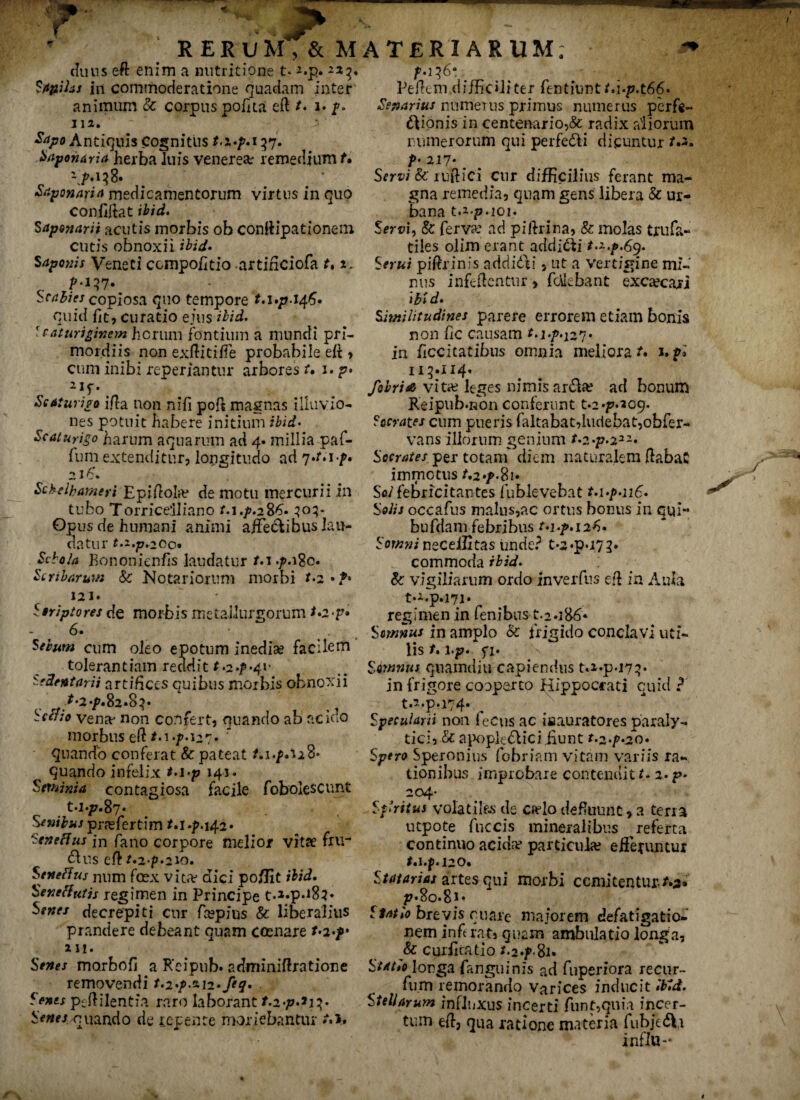 RERUM, & MATERIARUM:
duus eſt enim a nutritione t. 2.p. 223.
Sapilas in commoderatione quadam inter
animum & corpus poſita eſt t. 1. p.
112.
Sapo Antiquis cognitus t.2.p.137.
Saponaria herba luis venereæ remedium t.
2.p.138.
Saponaria medicamentorum virtus in quo
conſiſtat ibid.
Saponarii acutis morbis ob conſtipationem
cutis obnoxii ibid.
Saponis Veneti compoſitio artificioſa t. 2.
p.137.
Scabies copioſa quo tempore t.1.p.146.
quid ſit, curatio ejus ibid.
Scaturiginem horum fontium a mundi pri-
mordiis non exſtitiſſe probabile eſt,
cum inibi reperiantur arbores t. 1. p.
215.
Scaturigo iſta non niſi poſt magnas illuvio-
nes potuit habere initium ibid.
Scaturigo harum aquarum ad 4. millia paſ-
ſum extenditur, longitudo ad 7.t.1.p.
216.
Schelhameri Epiſtolæ de motu mercurii in
tubo Torricelliano t.1.p.286. 303.
Opus de humani animi affectibus lau-
datur t.2.p.200.
Schola Bononienſis laudatur t.1.p.180.
Scribarum & Notariorum morbi t.2.p.
121.
Scriptores de morbis metallurgorum t.2.p.
6.
Sebum cum oleo epotum inediæ facilem
tolerantiam reddit t.2.p.41.
Sedentarii artifices quibus morbis obnoxii
t.2.p.82.83.
Sectio venæ non confert, quando ab acido
morbus eſt t.1.p.127.
quando conferat & pateat t.1.p.128.
quando infelix t.1.p 141.
Seminia contagiosa facile ſoboleſcunt
t.1.p.87.
Senibus præſertim t.1.p.142.
Senectus in ſano corpore melior vitæ fru-
ctus eſt t.2.p.210.
Senectus num fœx vitæ dici poſſit ibid.
Senectutis regimen in Principe t.2.p.183.
Senes decrepiti cur ſæpius & liberalius
prandere debeant quam cœnare t.2.p.
211.
Senes morboſi a Reipub. adminiſtratione
removendi t.2.p.212.ſeq.
Senes peſtilentia raro laborant t.2.p.213.
Senes quando de repente moriebantur t.1.
p.136.
Peſtem difficiliter ſentiunt t.1.p.166.
Senarius numerus primus numerus perfe-
ctionis in centenario,& radix aliorum
numerorum qui perfecti dicuntur t.2.
p. 217.
Servi & ruſtici cur difficilius ferant ma-
gna remedia, quam gens libera & ur-
bana t.2.p.101.
Servi, & ſervæ ad piſtrina, & molas truſa-
tiles olim erant addicti t.2.p.69.
Servi piſtrinis addicti, ut a vertigine mi-
nus infeſtentur, ſolebant excæcari
ibid.
Similitudines parere errorem etiam bonis
non ſic causam t.1.p.127.
in ſiccitatibus omnia meliora t. 1.p.
113.114.
ſobriæ vitæ leges nimis arctæ ad bonum
Reipub.non conferunt t.2.p.209.
Socrates cum pueris ſaltabat,ludebat,obſer-
vans illorum genium t.2.p.222.
Socrates per totam diem naturalem ſtabat
immotus t.2.p.81.
Sol febricitantes ſublevebat t.1.p.116.
Solis occaſus malus,ac ortus bonus in qui-
buſdam febribus t.1.p.126.
Somni neceſſitas unde? t.2.p.173.
commoda ibid.
& vigiliarum ordo inverſus eſt in Aula
t.2.p.171.
regimen in ſenibus t.2.186.
Somnus in amplo & frigido conclavi uti-
lis t. 1.p. 51.
Somnus quamdiu capiendus t.2.p.173.
in frigore cooperto Hippocrati quid?
t.2.p.174.
Specularii non ſecus ac inauratores paraly-
tici, & apoplectici fiunt t.2.p.20.
Spero Speronius ſobriam vitam variis ra-
tionibus improbare contendit t. 2. p.
204.
Spiritus volatiles de cælo defluunt, a terra
utpote ſuccis mineralibus referta
continuo acidæ particulæ efferuntur
t.1.p.120.
Statarias artes qui morbi comitentur t.2.
p.80.81.
Statio brevis quare majorem defatigatio-
nem inferat, quam ambulatio longa,
& curſitatio t.2.p.81.
Statio longa ſanguinis ad ſuperiora recur-
ſum remorando varices inducit ibid.
Stellarum influxus incerti ſunt,quia incer-
tum eſt, qua ratione materia ſubjecta
influ-